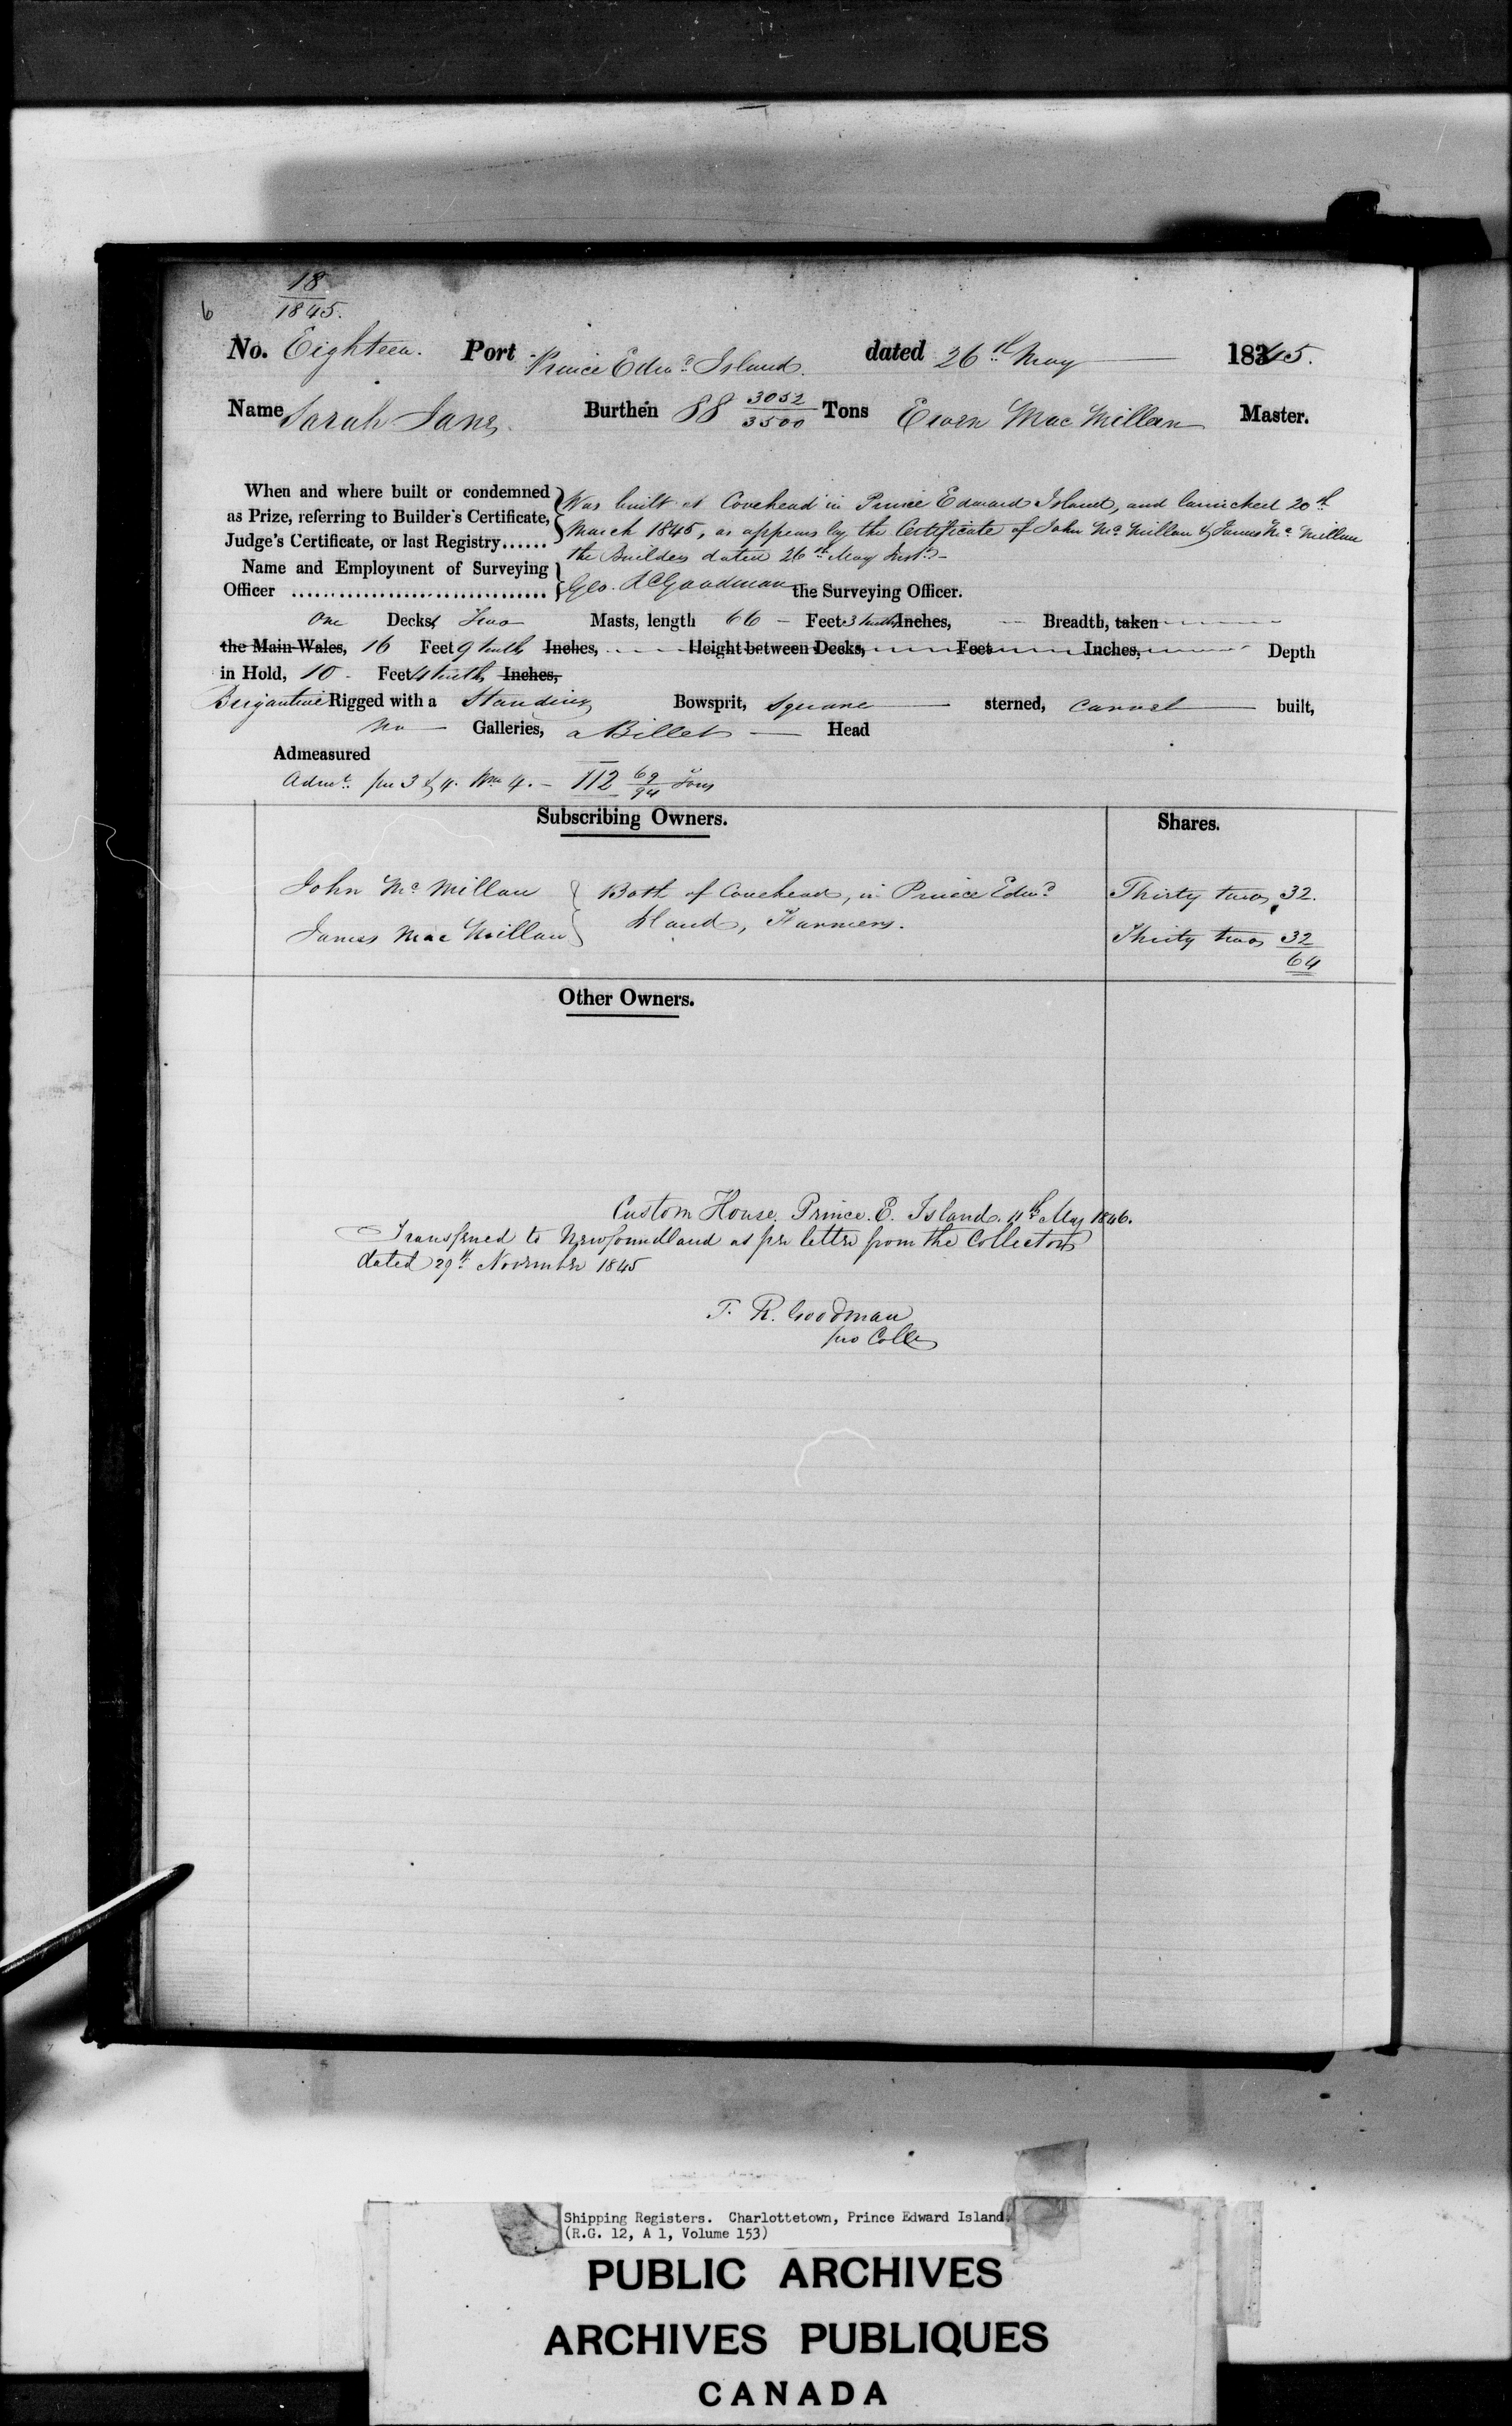 18
1845.
6
No. Eighteen. Port Prince Edwd Island. dated 26th May 18345.
Name Sarah Jane Burthen 88 3052/3500 Tons Ewen Mac Millan Master.
When and where built or condemned
as Prize, referring to Builder's Certificate,
Judge's Certificate, or last Registry......
Was built at Covehead in Prince Edward Island, and launched 20th
March 1845, as appears by the Certificate of John Mc Millan & James Mc Millan
the Builders dated 26th May Inst.
Name and Employment of Surveying
Officer ................................ Geo. R Goodman the Surveying Officer.
One Decks, Two Masts, length 66 Feet 3 tenths Inches, Breadth, taken
the Main Wales, 16 Feet 9 tenths Inches, Height between Decks, Feet Inches, Depth
in Hold, 10 Feet 4 tenths Inches,
Brigantine Rigged with a Standing Bowsprit, Square sterned, Carvel built,
No Galleries, a Billet Head
Admeasured
Admt. per 3 & 4 Wm 4. – 112 69/94 Tons
Subscribing Owners. Shares.
John Mc Millan Both of Covehead, in Prince Edwd Thirty two 32.
James Mac Millan Island, Farmers. Thirty two 32
64
Other Owners.
Custom House. Prince. E. Island. 11th May 1846.
Transferred to Newfoundland as per letter from the Collector
dated 29th November 1845
T. R. Goodman
pro Collr
Shipping Registers. Charlottetown, Prince Edward Island.
(R.G. 12, A 1, Volume 153)
PUBLIC ARCHIVES
ARCHIVES PUBLIQUES
CANADA